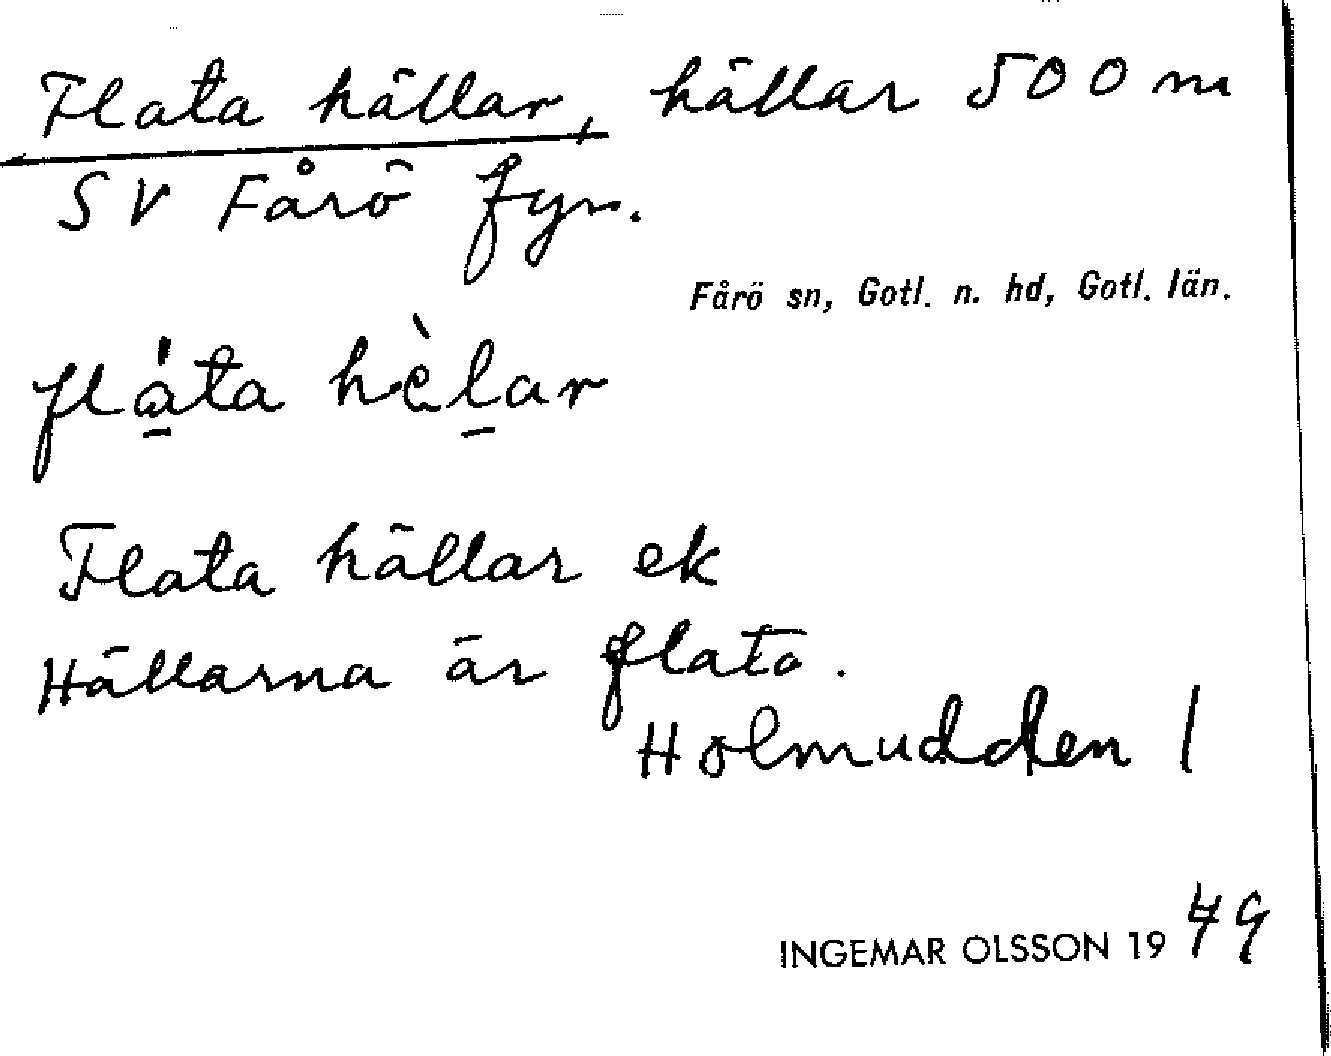 Flata hällar, hällar 500 m
SV Fårö fyr.
Fårö sn, Gotl. n. hd, Gotl. län.
fla̱̍ta hὲḻar
Flata hällar ek
Hällarna är flata.
Holmudden 1
INGEMAR OLSSON 1979